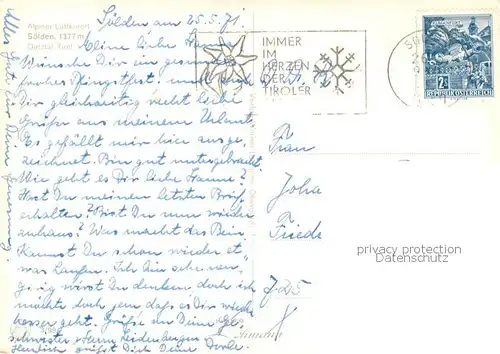 Alpiner Luftkurort
Sölden, 1377 m
Ötztal Tirol
Sölden am 25.5.71.
Meine liebe Hanne!
Wünsche Dir ein gesundes
frohes Pfingstfest, und
Dir gleichzeitig recht liebe
Grüße aus meinem Urlaub.
Es gefällt mir hier ausge-
zeichnet. Bin gut untergebracht.
Wie geht es Dir liebe Hanne?
Hast Du meinen letzten Brief
erhalten? Bist Du nun wieder
zuhaus? Was macht das Bein
Kannst Du schon wieder et-
was Laufen. Ich bin sehr neu-
gierig wirst Du denken, doch ich
möchte doch gern daß es Dir wieder
besser geht. Grüße an Deine Ge-
schwister + Herrn Leidenberger
Herzlich grüßt Dich Deine
Alles Gute für Deine Genesung.
IMMER
IM
HERZEN
DER
TIROLER
KLAGENFURT
2 S
REPUBLIK ÖSTERREICH
Frau
Joha
Friede
725
privacy protection
Datenschutz